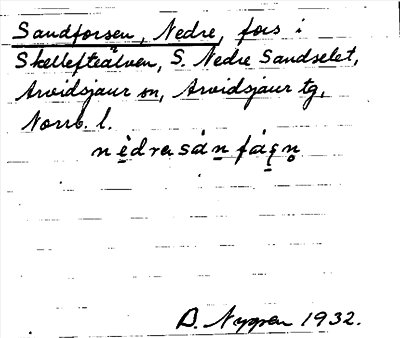 Sandforsen, Nedre, fors i
Skellefteälven, S. Nedre Sandselet,
Arvidsjaur sn, Arvidsjaur tg,
Norrb. l.
nèdrasánfáşn̥
D. Nygren 1932.